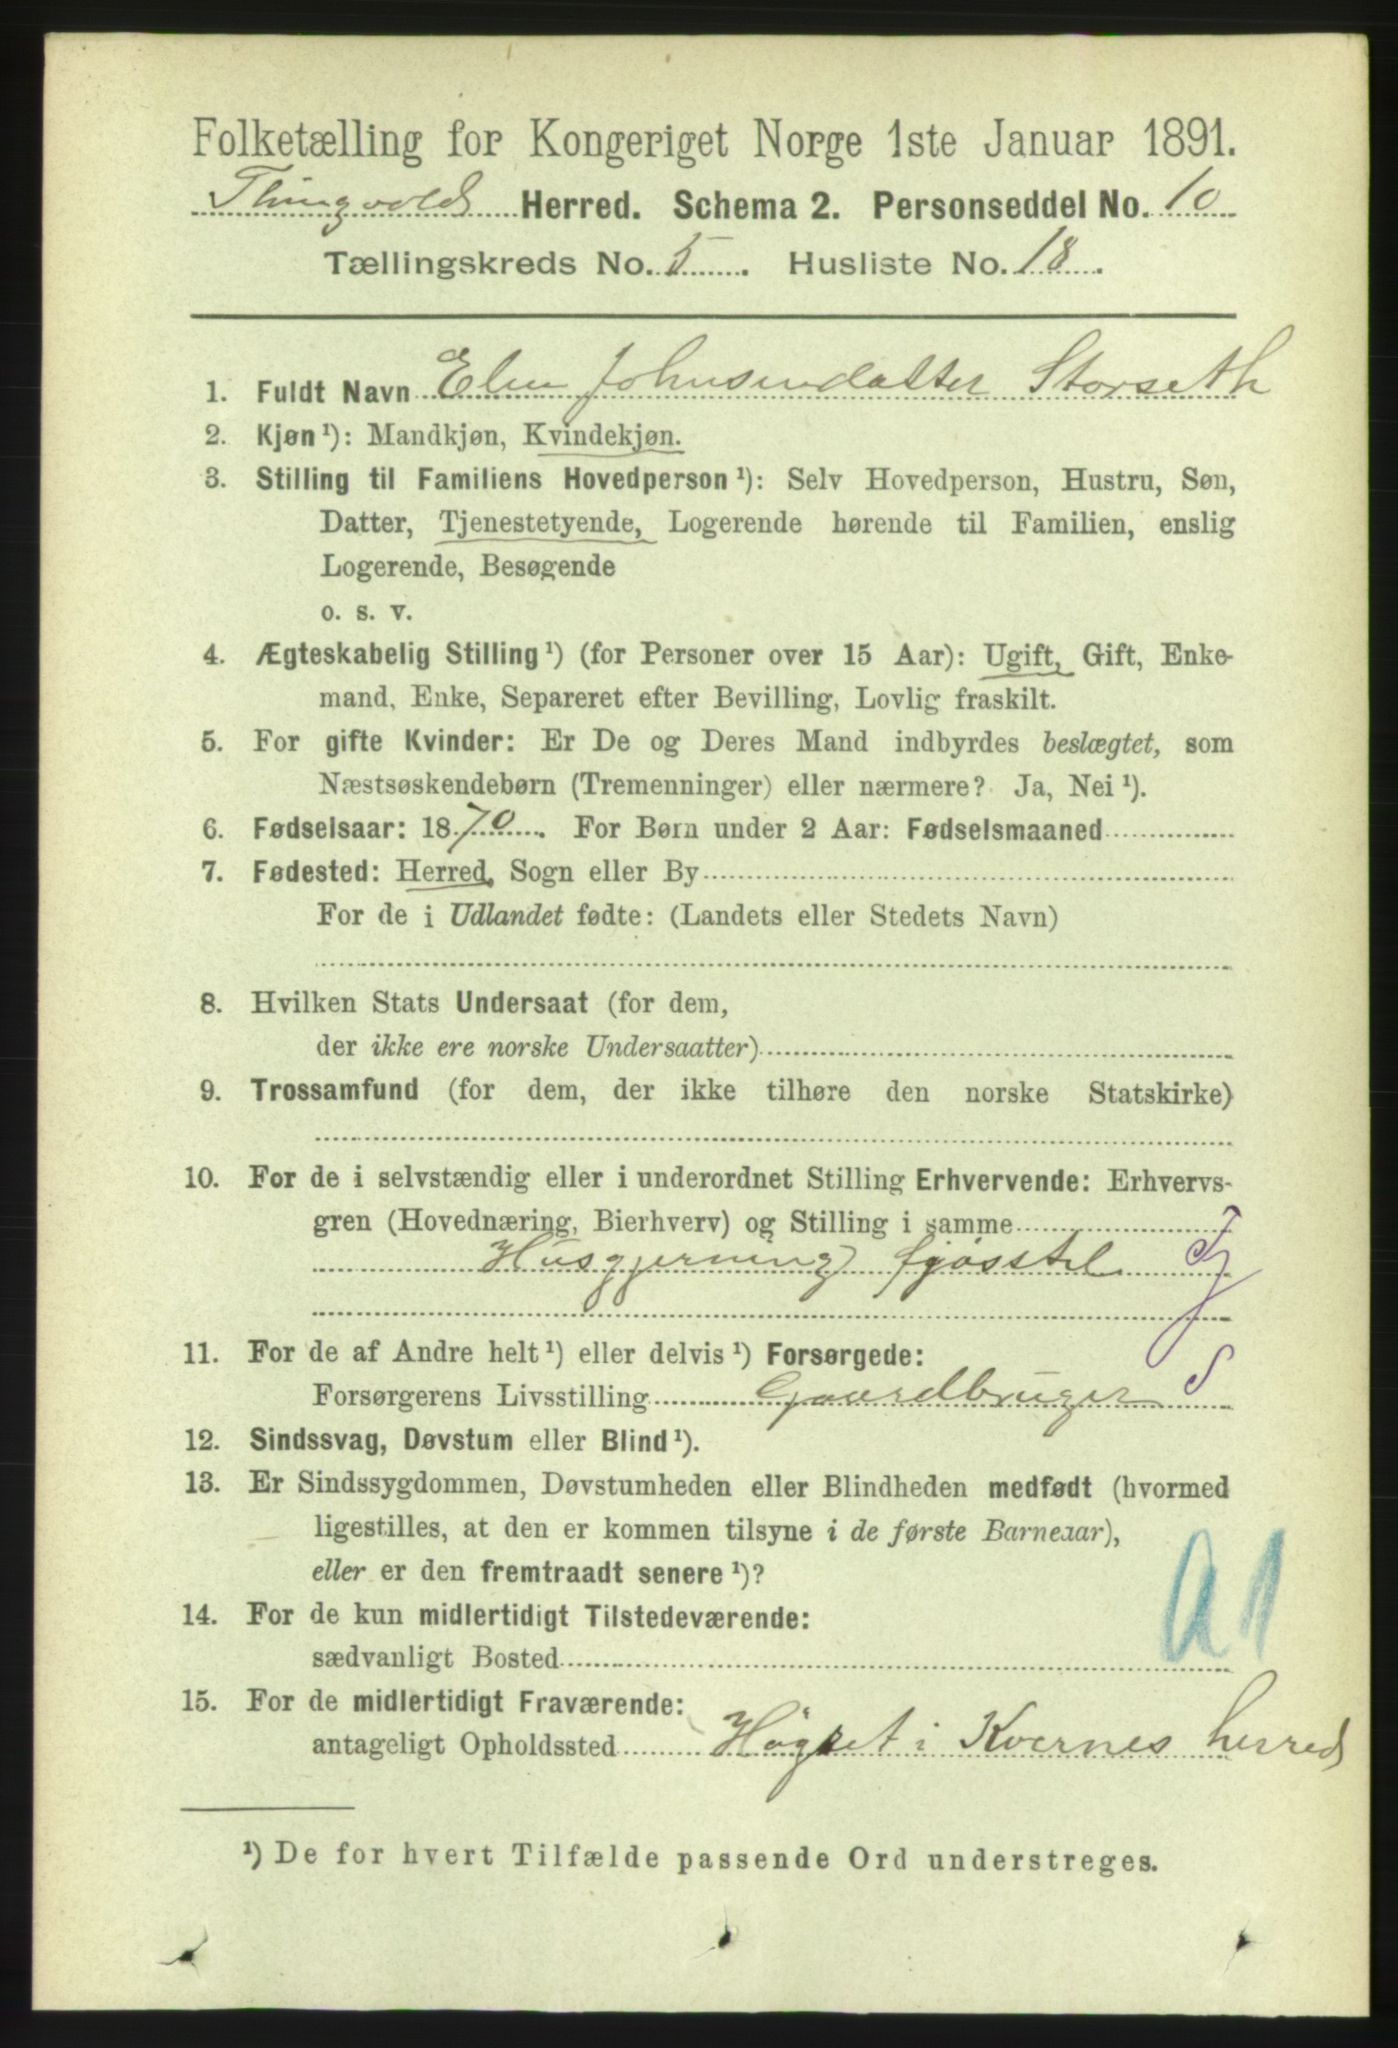 Folketælling for Kongeriget Norge 1ste Januar 1891.
Thingvolds Herred. Schema 2. Personseddel No. 10
Tællingskreds No. 5. Husliste No. 18.
1. Fuldt Navn Elen Johnsendatter Storseth
2. Kjøn¹): Mandkjøn, Kvindekjøn.
3. Stilling til Familiens Hovedperson¹): Selv Hovedperson, Hustru, Søn,
Datter, Tjenestetyende, Logerende hørende til Familien, enslig
Logerende, Besøgende
o. s. v.
4. Ægteskabelig Stilling¹) (for Personer over 15 Aar): Ugift, Gift, Enke-
mand, Enke, Separeret efter Bevilling, Lovlig fraskilt.
5. For gifte Kvinder: Er De og Deres Mand indbyrdes beslægtet, som
Næstsøskendebørn (Tremenninger) eller nærmere? Ja, Nei¹).
6. Fødselsaar: 1870. For Børn under 2 Aar: Fødselsmaaned
7. Fødested: Herred, Sogn eller By
For de i Udlandet fødte: (Landets eller Stedets Navn)
8. Hvilken Stats Undersaat (for dem,
der ikke ere norske Undersaatter)
9. Trossamfund (for dem, der ikke tilhøre den norske Statskirke)
10. For de i selvstændig eller i underordnet Stilling Erhvervende: Erhvervs-
gren (Hovednæring, Bierhverv) og Stilling i samme
Husgjerning fjøsstel
11. For de af Andre helt¹) eller delvis¹) Forsørgede:
Forsørgerens Livsstilling Gaardbruger S
12. Sindssvag, Døvstum eller Blind¹).
13. Er Sindssygdommen, Døvstumheden eller Blindheden medfødt (hvormed
ligestilles, at den er kommen tilsyne i de første Barneaar),
eller er den fremtraadt senere¹)?
a 1
14. For de kun midlertidigt Tilstedeværende:
sædvanligt Bosted
15. For de midlertidigt Fraværende:
antageligt Opholdssted Høgset i Kvernes herred
¹) De for hvert Tilfælde passende Ord understreges.